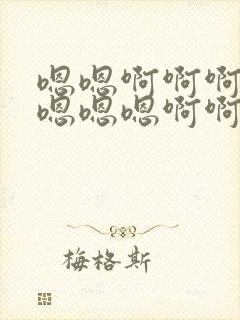 嗯嗯啊啊啊
嗯嗯嗯啊啊
梅格斯